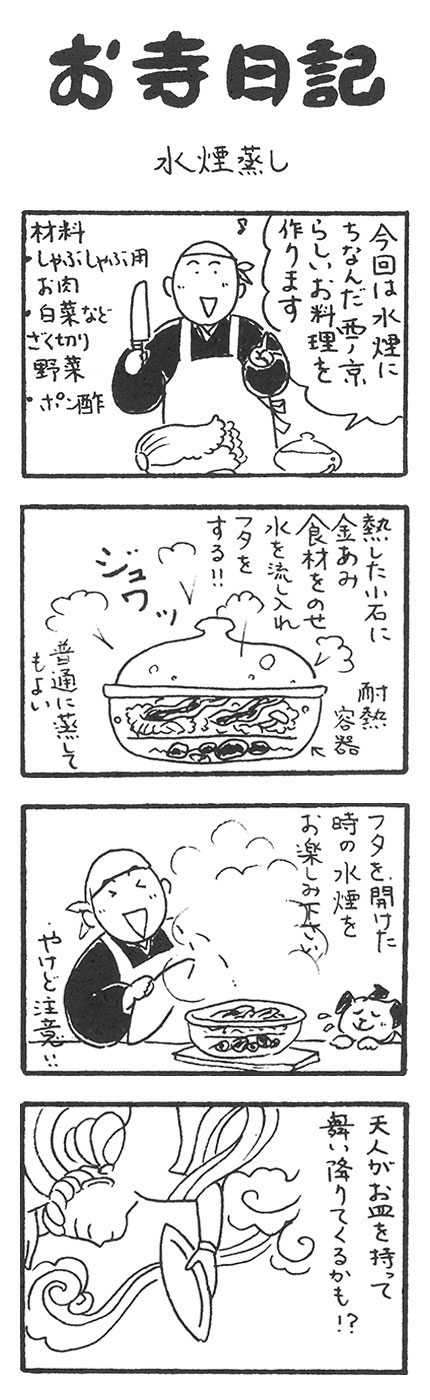 お寺日記
水煙蒸し
今回は水煙に
ちなんだ西ノ京
らしいお料理を
作ります
材料
・しゃぶしゃぶ用
お肉
・白菜など
ざく切り
野菜
・ポン酢
熱した小石に
金あみ
食材をのせ
水を流し入れ
フタを
する!!
ジュワッ
耐熱
容器
普通に蒸して
もよい
フタを開けた
時の水煙を
お楽しみ下さい
・やけど注意!!
天人がお皿を持って
舞い降りてくるかも!?